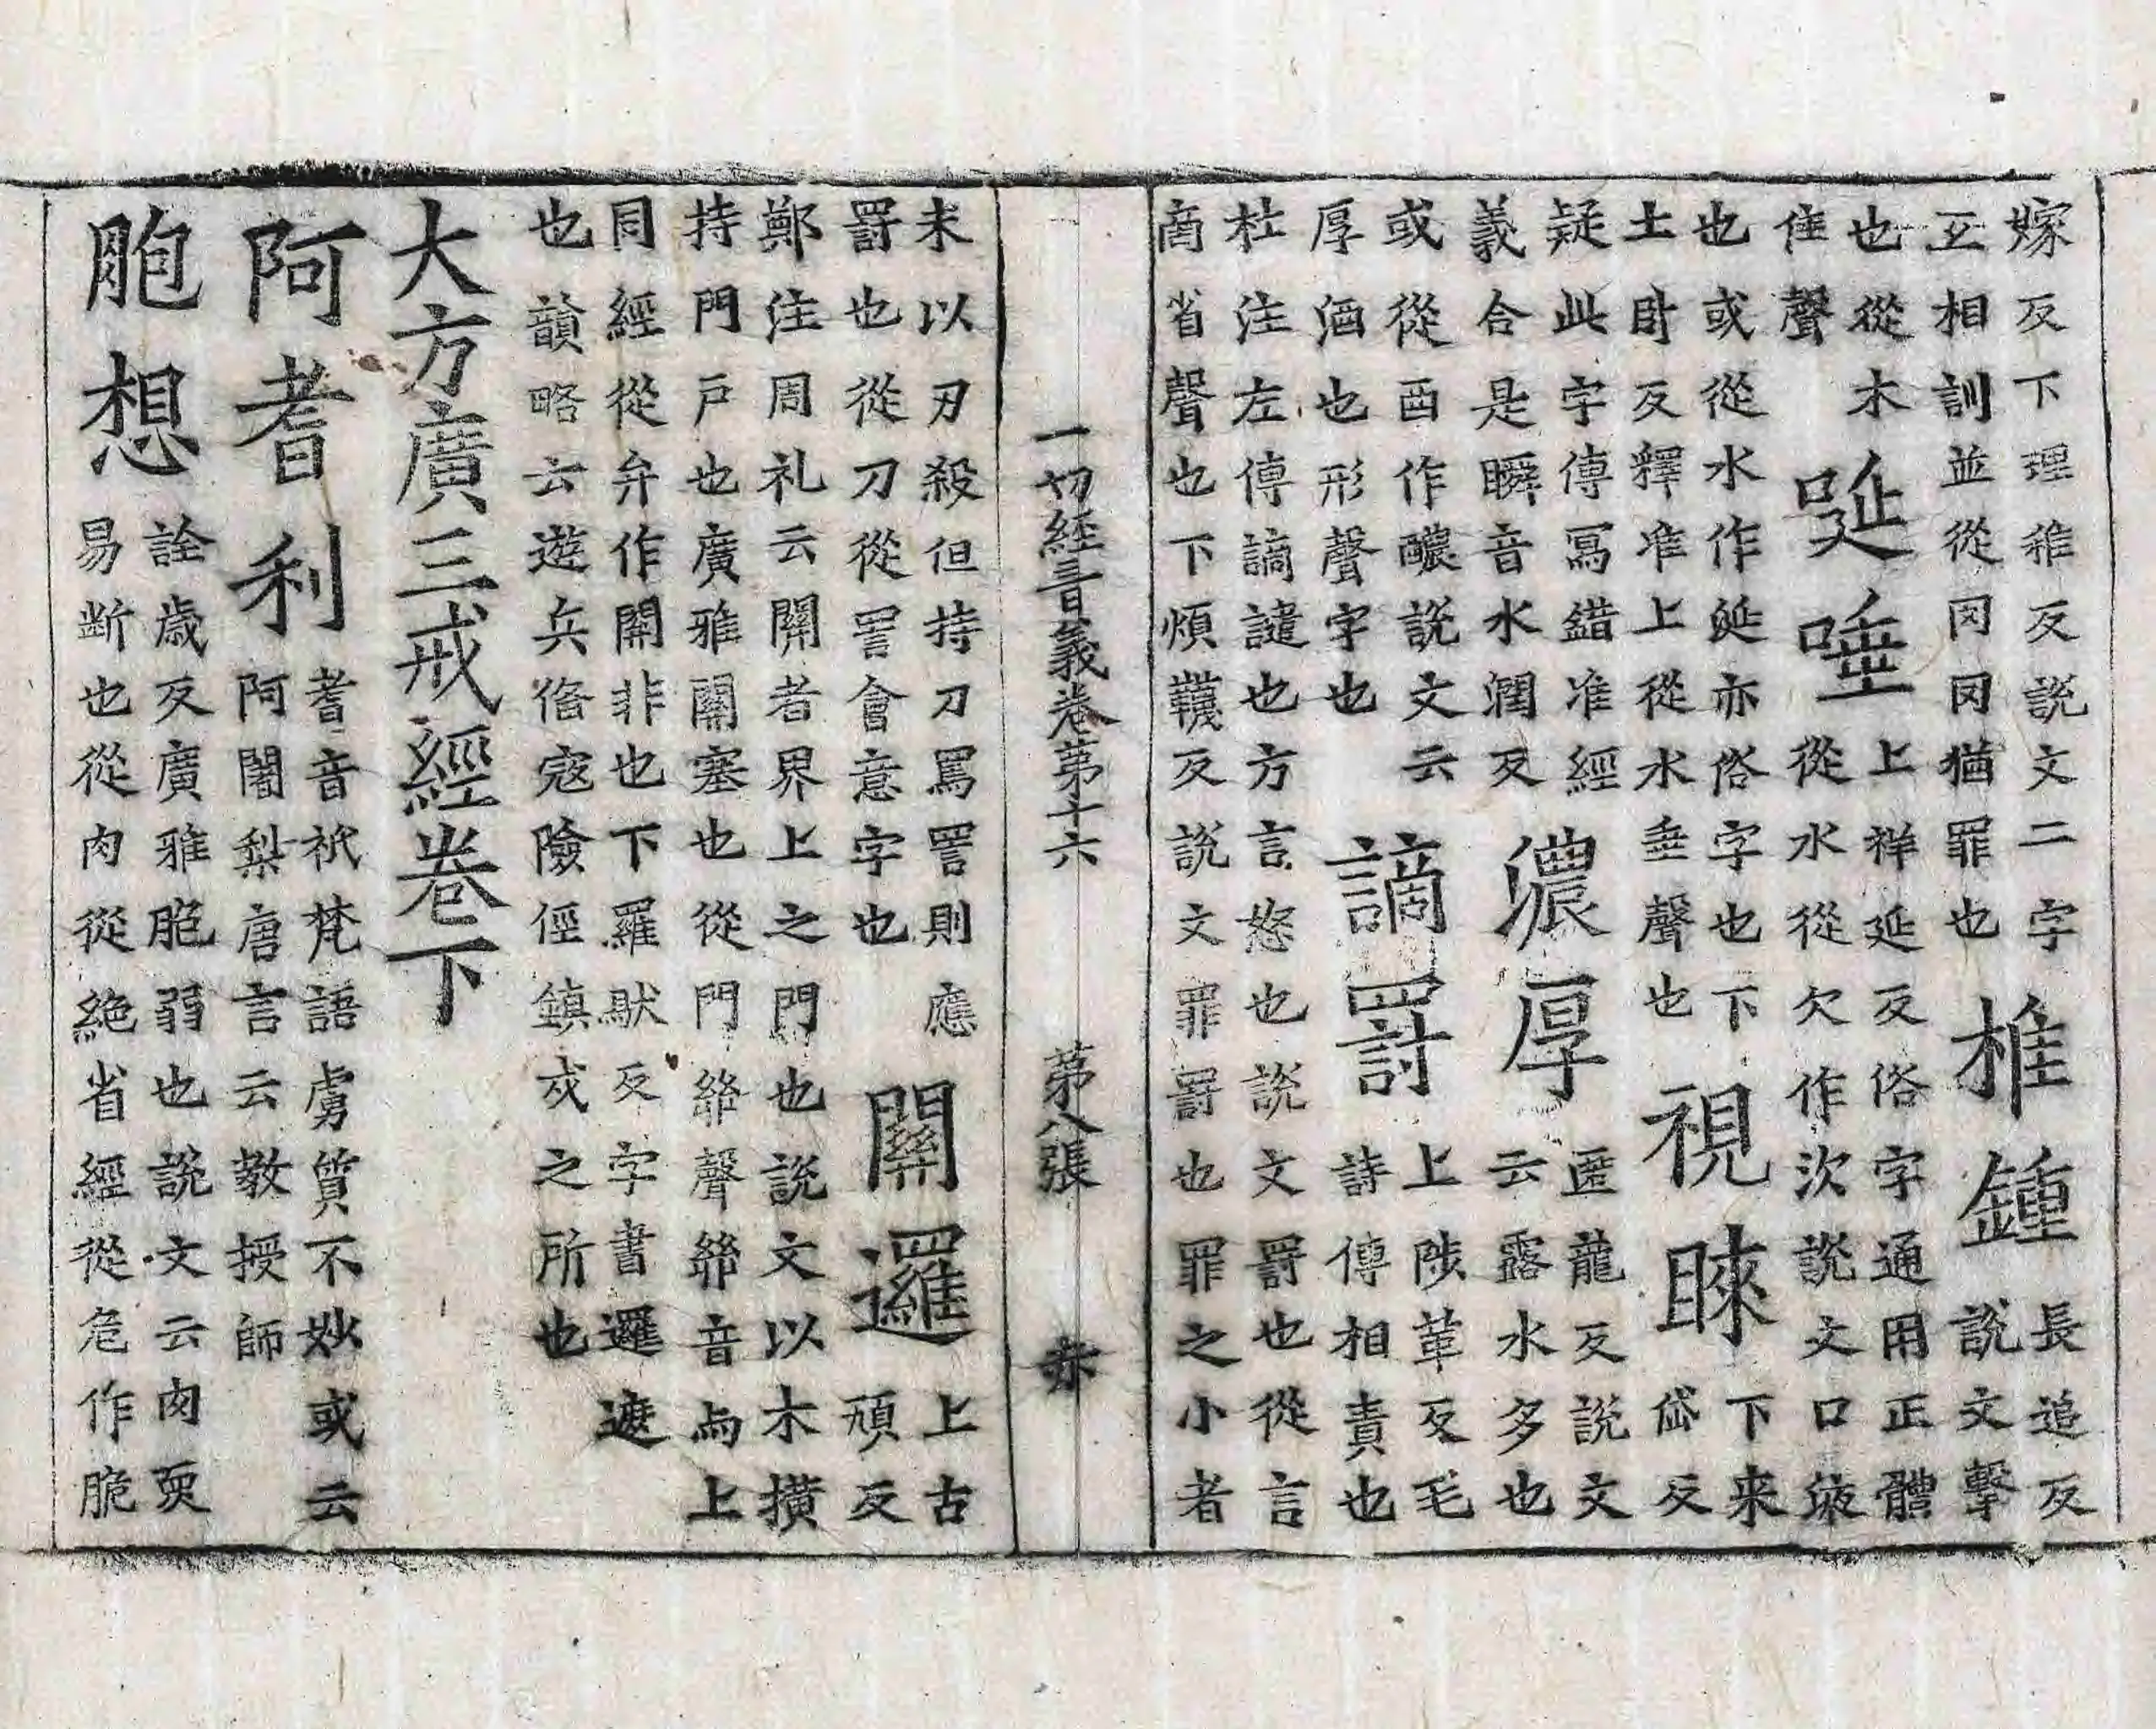 嫁反下理稚反說文二字
互相訓並從冈冈猶罪也
椎鍾
長追反
說文擊
也從木
隹聲
唌唾
上祥延反俗字通用正體
從水從欠作㳄說文口液
也或從水作涎亦俗字也下
土卧反釋准上從水垂聲也
視睞
下来
岱反
疑此字傳寫錯准經
義合是瞬音水潤反
濃厚
匿龍反說文
云露水多也
或從酉作醲說文云
厚酒也形聲字也
謫罰
上陟革反毛
詩傳相責也
杜注左傳謫譴也方言怒也說文罰也從言
啇省聲也下煩韈反說文罪罰也罪之小者
一切經音義卷第十六 第八張 赤
未以刃殺但持刀罵詈則應
罰也從刀從詈會意字也
關邏
上古
頑反
鄭注周礼云關者界上之門也說文以木撗
持門戶也廣雅關塞也從門𢇇聲𢇇音与上
同經從弁作開非也下羅䭾反字書邏遮
也韻略云遊兵俻寇險徑鎮戍之所也
大方廣三戒經卷下
阿耆利
耆音衹梵語虜質不妙或云
阿闍梨唐言云教授師
脃想
詮歲反廣雅脃弱也說文云肉耎
易断也從肉從絶省經從危作脆